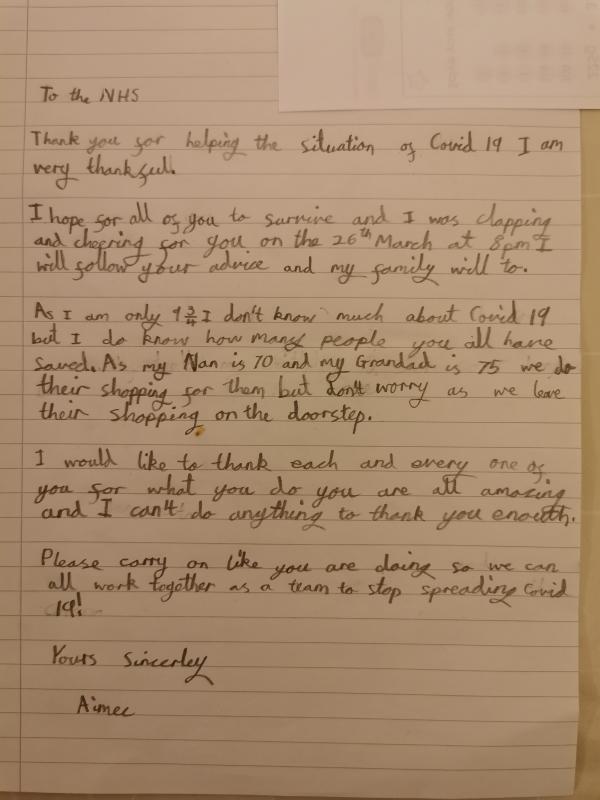 To the NHS
Thank you for helping the situation of Covid 19 I am
very thankful.
I hope for all of you to survive and I was clapping
and cheering for you on the 26th March at 8pm I
will follow your advice and my family will to.
As I am only 9 3/4 I don't know much about Covid 19
but I do know how many people you all have
saved. As my Nan is 70 and my Grandad is 75 we do
their shopping for them but don't worry as we leave
their shopping on the doorstep.
I would like to thank each and every one of
you for what you do you are all amazing
and I can't do anything to thank you enough.
Please carry on like you are doing so we can
all work together as a team to stop spreading Covid
19!
Yours Sincerley
Aimee